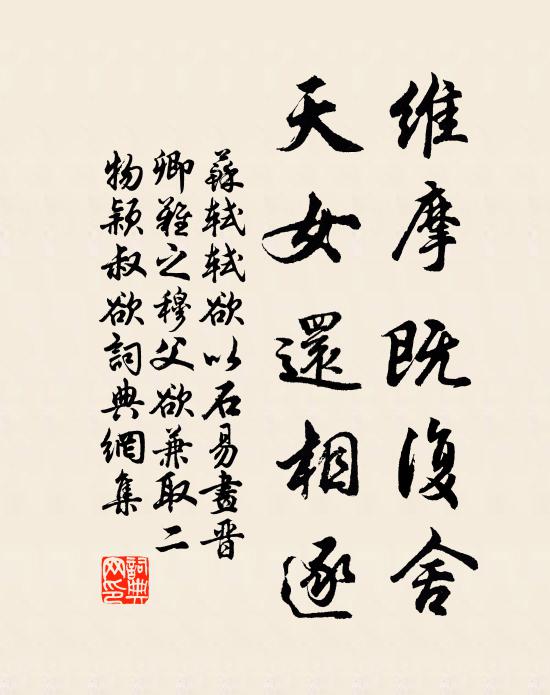 維摩既復舍
天女還相逐
蘇軾軾欲以石易畫晋
卿難之穆父欲兼取二
物颖叔欲詞典網集
詞典网印